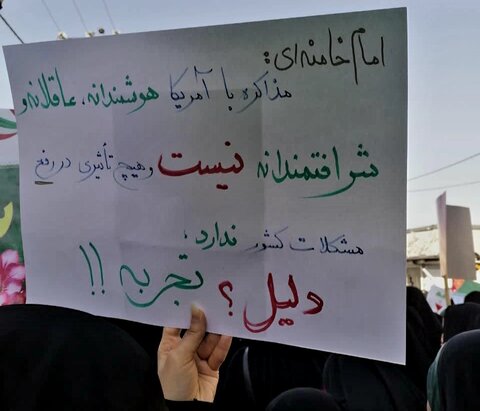 امام خامنه‌ای:
مذاکره با آمریکا هوشمندانه، عاقلانه و
شرافتمندانه نیست و هیچ تأثیری در رفع
مشکلات کشور ندارد؛
دلیل؟ تجربه!!